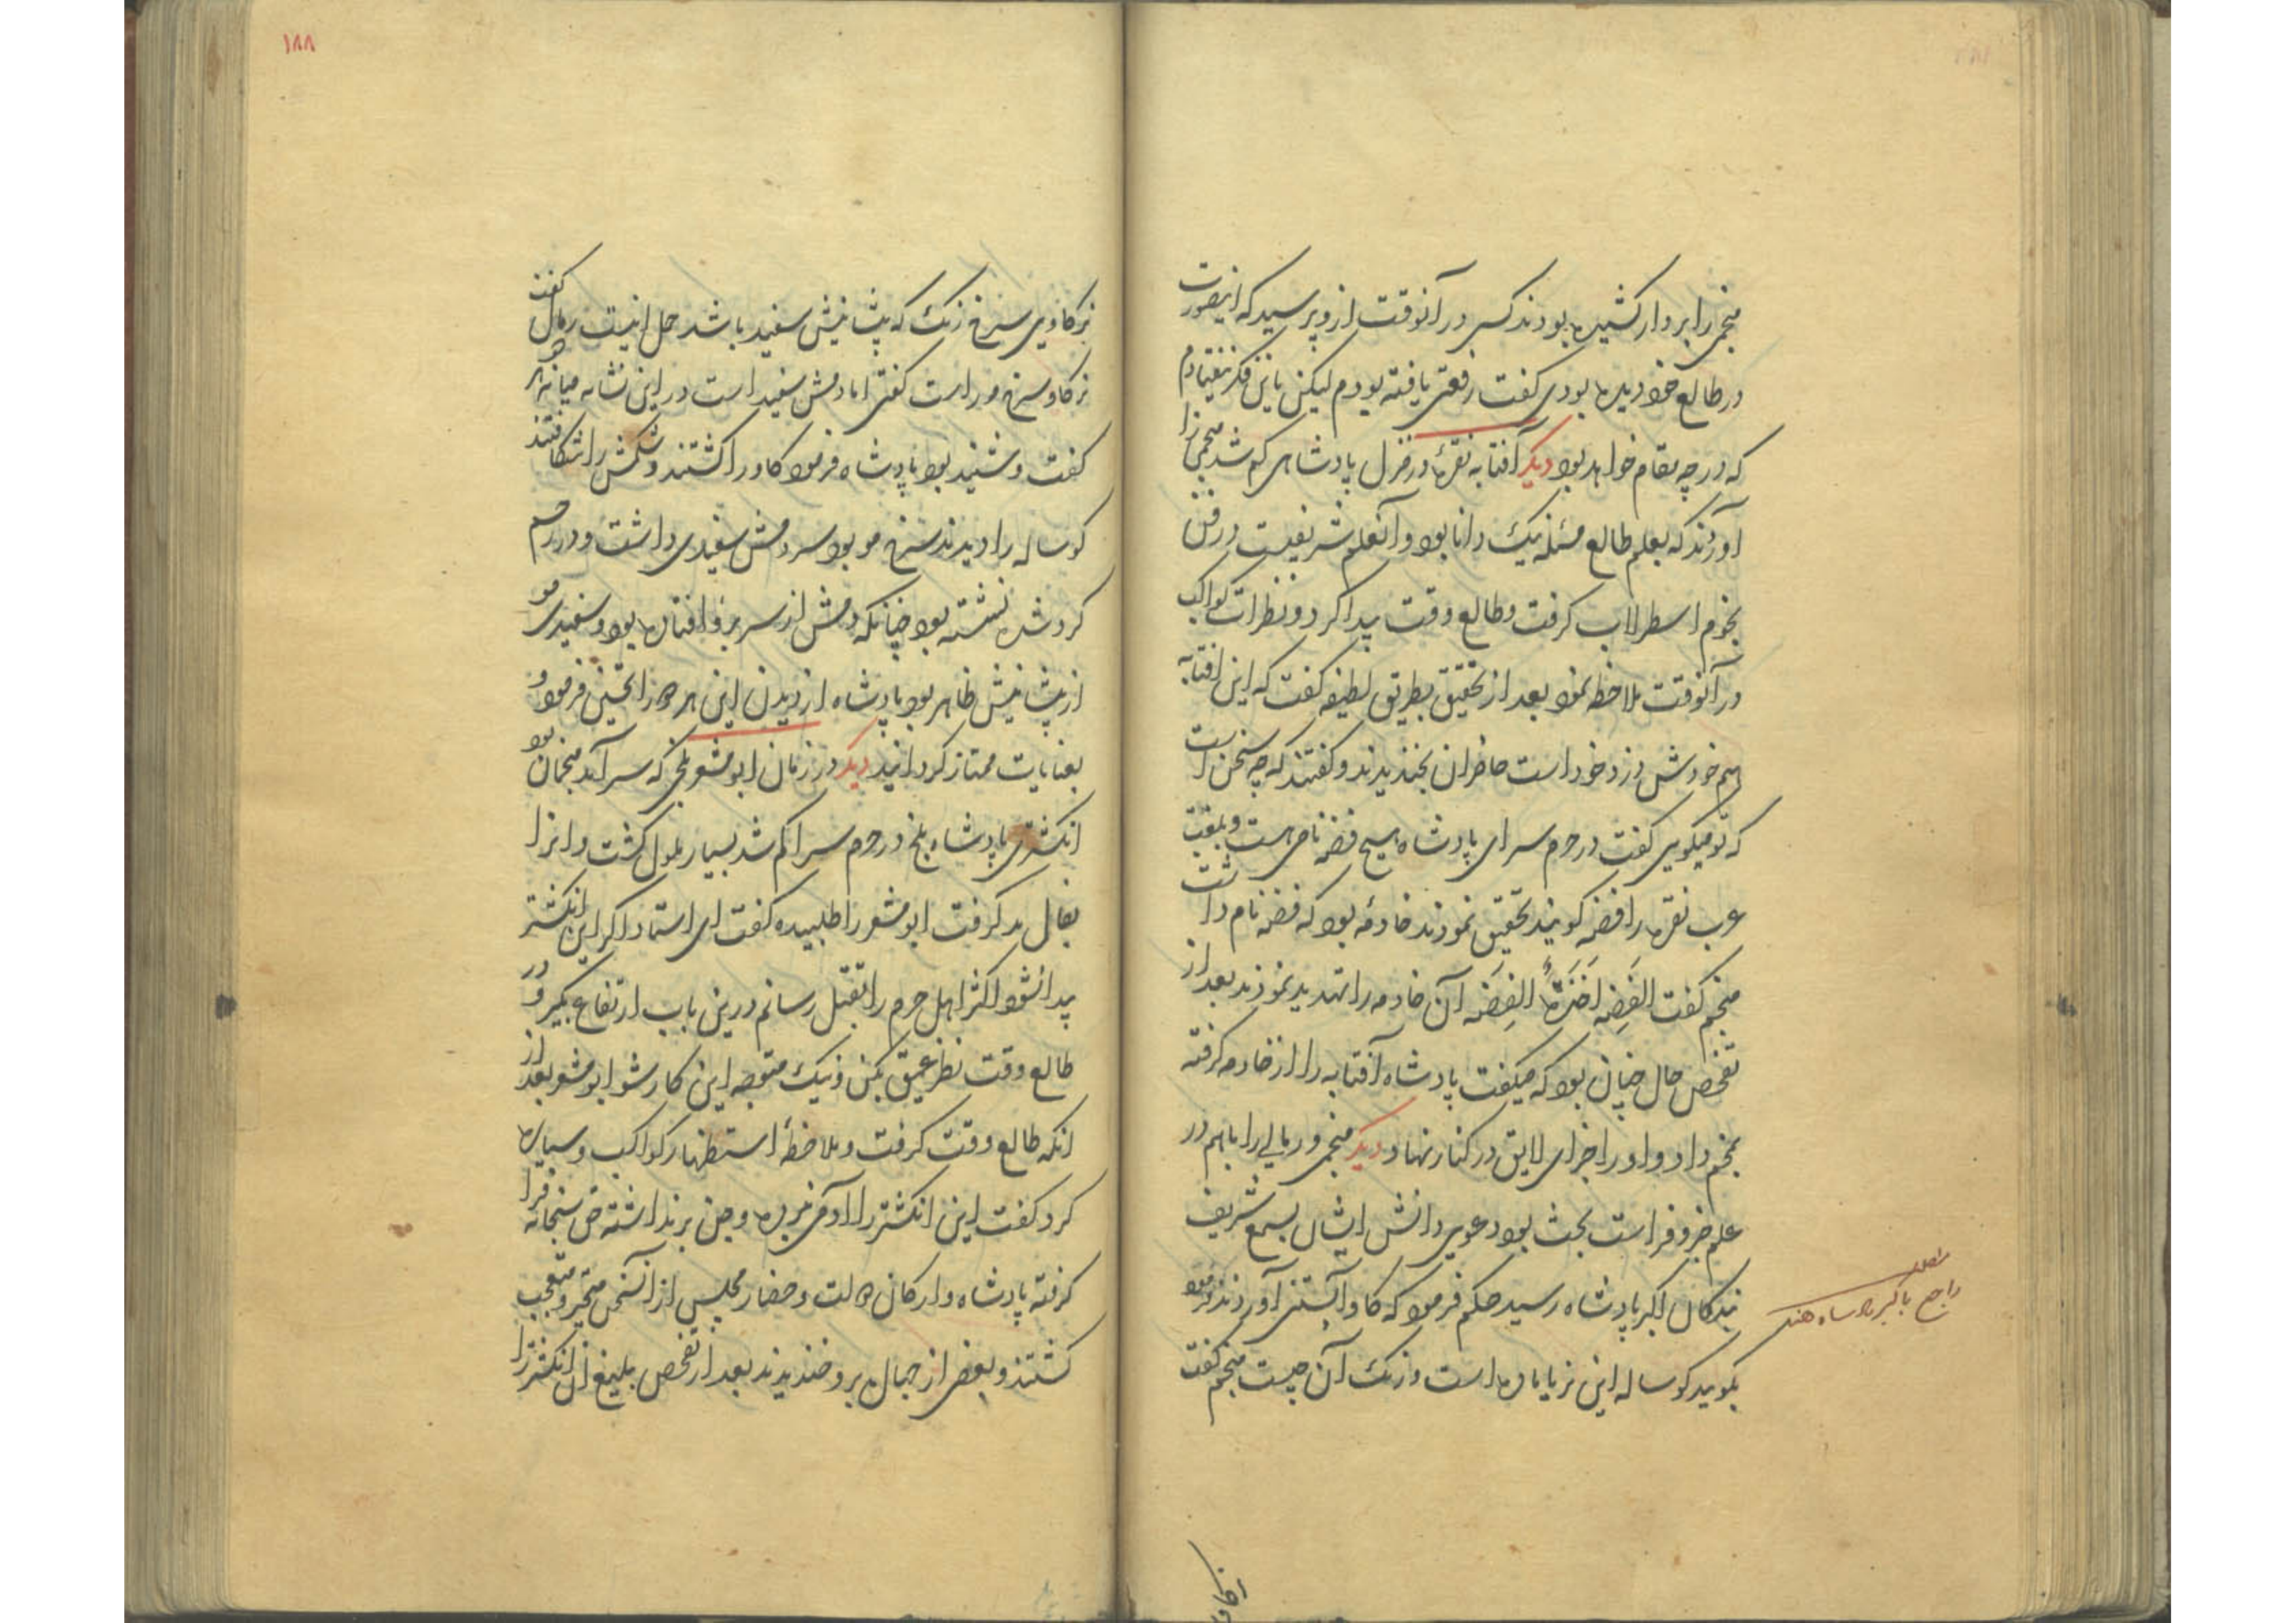 منجمی را بر دار کشیده بودند کسی در آنوقت از و پرسید که اینصورت
در طالع خود دیده بودی کفت رفعتی یافته بودم لیکن باین فکر نیفتادم
که در چه مقام خواهد بود دیکر آفتابه نقره در منزل پادشاهی کم شد منجمی را
آوردند که بعلم طالع مسئله نیک دانا بود و آنعلم شریفیست در فن
نجوم اسطرلاب کرفت و طالع وقت پیدا کرد و نظرات کواکب
در آنوقت ملاحظه نمود بعد از تحقیق بطریق لطیفه کفت که این افتابه
هم خودش دزد خود است حاضران بخندیدند و کفتند که چه سخن است
که تو میکویی کفت در حرم سرای پادشاه هیچ فضه نامی هست و بلغت
عرب نقره را فضه کویند تحقیق نمودند خادمه بود که فضه نام داشت
منجم کفت الفَضِه اَخَذَةُ الفِضَه آن خادمه را تهدید نمودند بعد از
تفحص حال چنان بود که میکفت پادشاه آفتابه را از خادمه کرفته
بمنجم داد و او را جزای لایق در کنار نهاد دیکر منجمی و رمالی را باهم در
علم جفر و فراست بحث بود دعوی دانش ایشان بسمع شریف
بندکان اکبر پادشاه رسید حکم فرمود که کاو آبستنی آوردند فرمود
بکویید کوساله این نر یا ماده است و رنک آن چیست منجم کفت
راجع باکبر پادشاه هند
نرکاو
۱۸۸
نرکاوی سرخ رنک که پیشانیش سفید باشد حمل اینست رمال کفت
نرکاو سرخ مو راست کفتی اما دمش سفید است در این نشانه میانه هر دو
کفت و شنید بود پادشاه فرمود کاو را کشتند و شکمش را شکافتند
کوساله را دیدند سرخ مو بود سر دمش سفیدی داشت و در رحم
کرد شده نشسته بود چنانکه دمش از سر بر رو افتاده بود و سفیدی مو
از پیشانیش ظاهر بود پادشاه از دیدن این هر دو را تحسین فرمود و
بعنایات ممتاز کردانید دیکر در زمان ابومعشر بلخی که سرآمد منجمان بود
انکشتری پادشاه بلخ در حرم سرا کم شد بسیار ملول کشت و انرا
بفال بد کرفت ابومعشر را طلبیده کفت ای استاد اکر این انکشتر
پیدا نشود اکثر اهل حرم را بقتل رسانم درین باب ارتفاع بکیر و در
طالع وقت نظر عمیق بکن و نیک متوجه این کار شو ابومعشر بعد از
انکه طالع وقت کرفت و ملاحظه استظهار کواکب و سیاره
کرد کفت این انکشتر را آدمی نبرده و جن برنداشته حق سبحانه فرا
کرفته پادشاه و ارکان دولت و حضار مجلس از آنسخن متحیر و متعجب
کشتند و بعضی از جهال برو خندیدند بعد از تفحص بلیغ آن انکشتر را